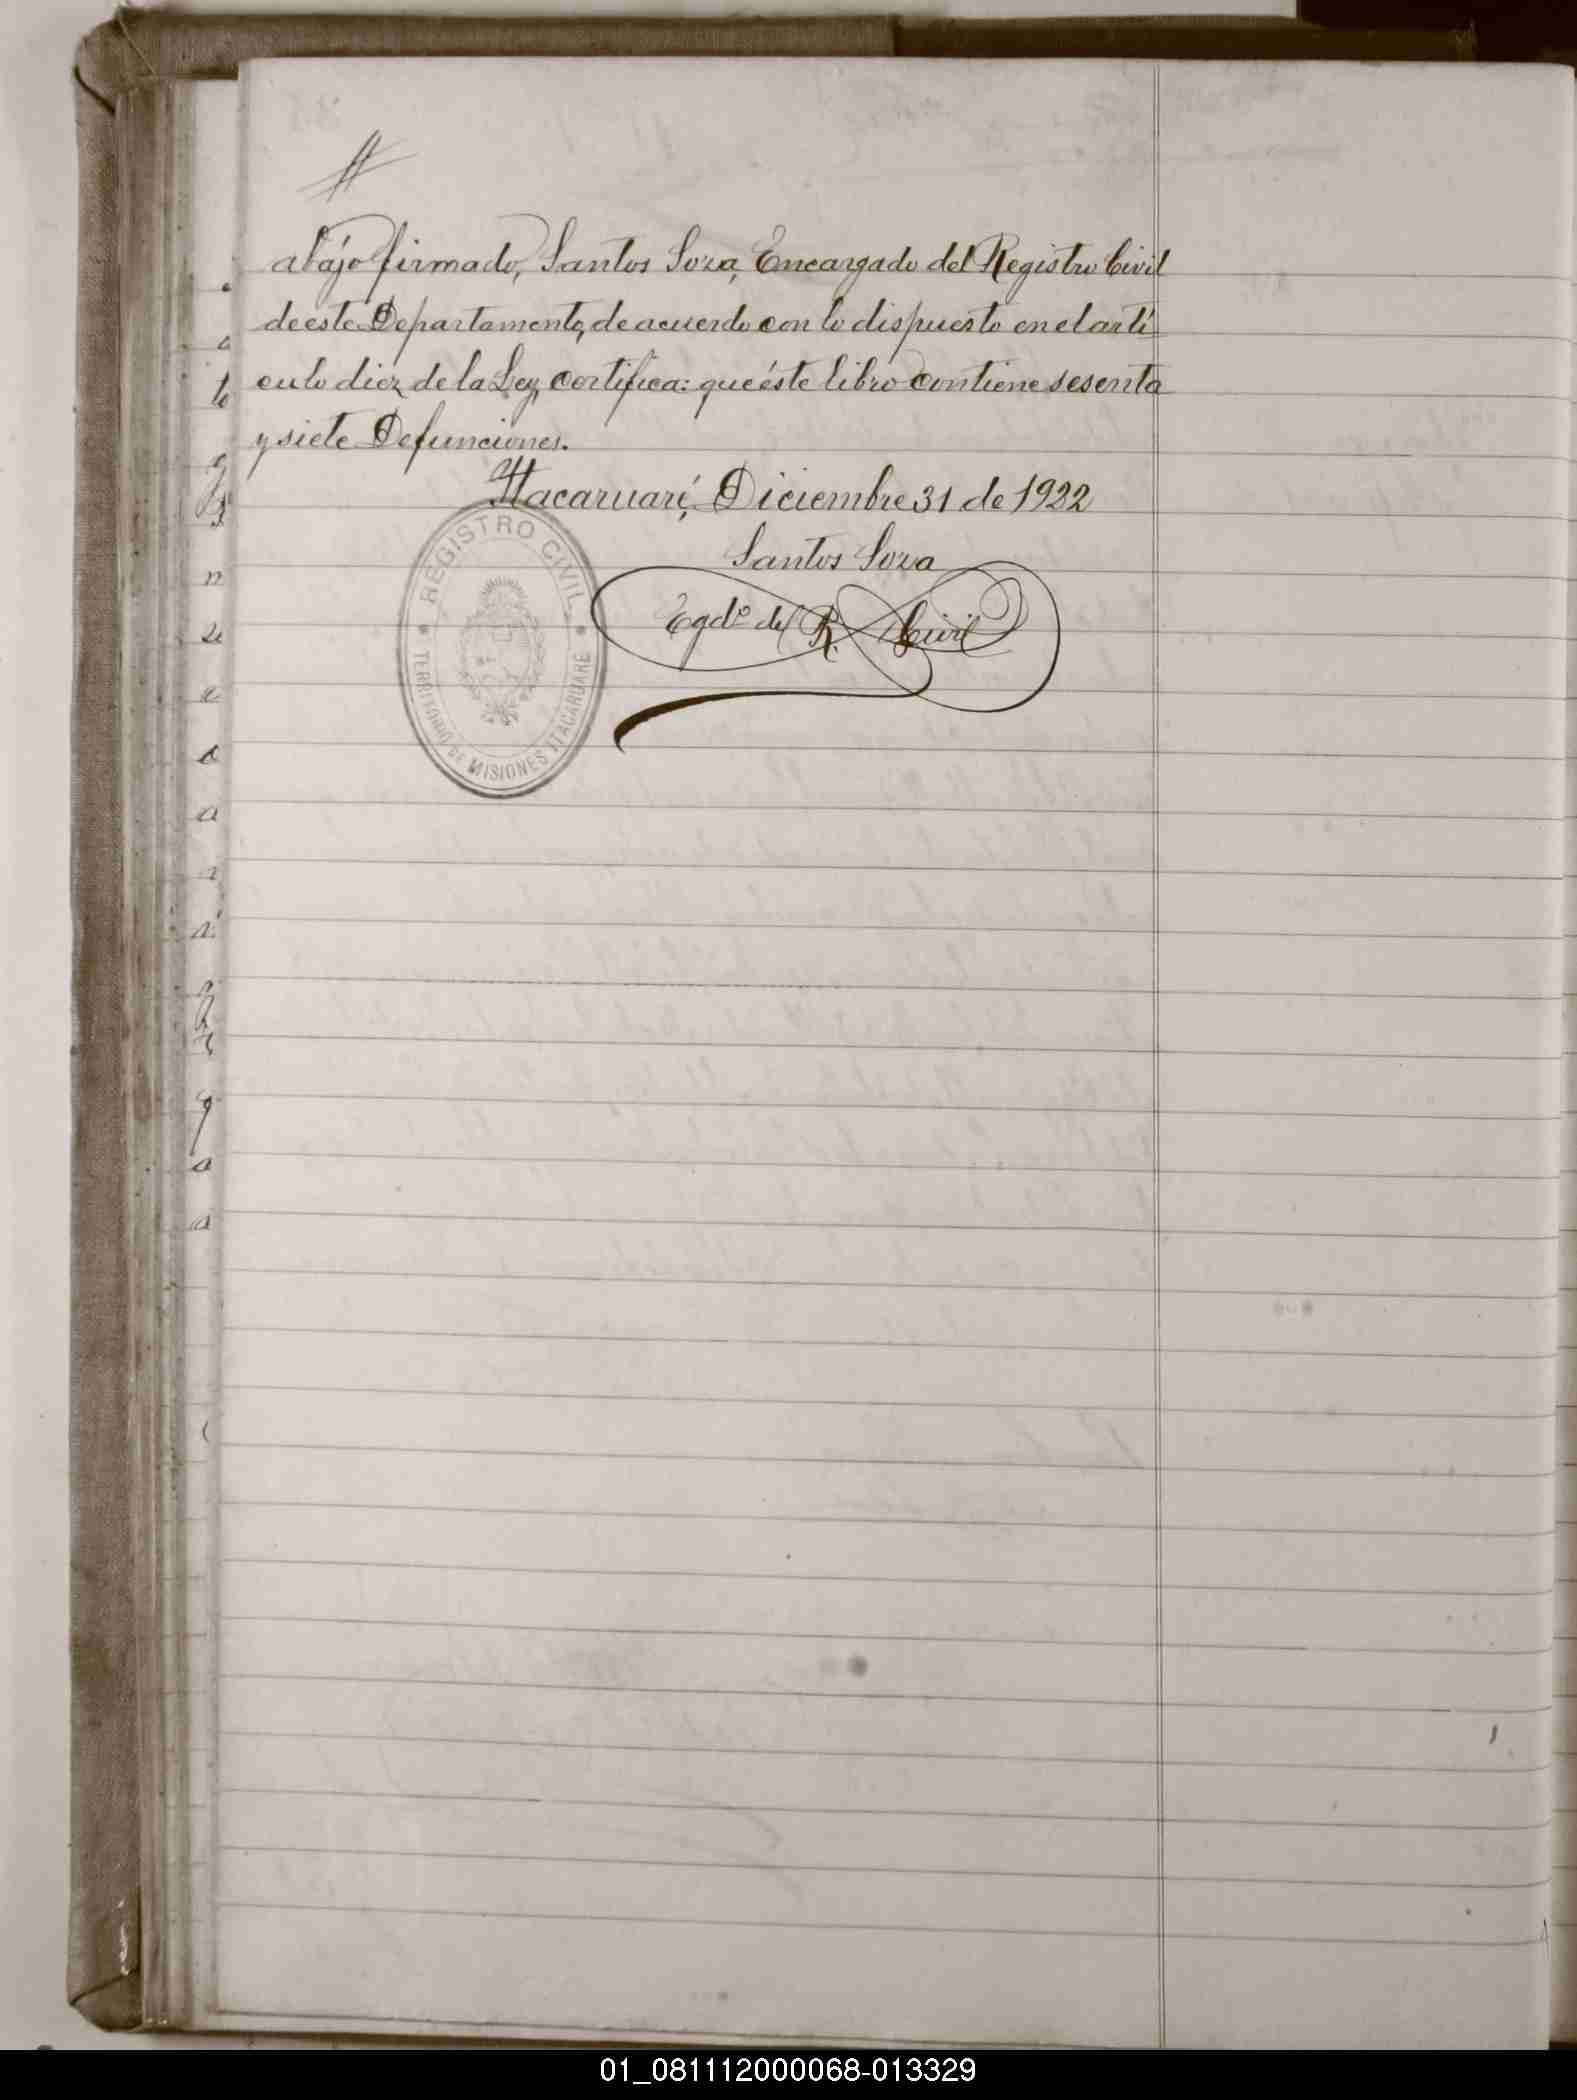 abajo firmado, Santos Soza, Encargado del Registro Civil
de este Departamento, de acuerdo con lo dispuesto en el artí
culo diez de la Ley, certifica: que éste libro contiene sesenta
y siete Defunciones.
Itacaruaré, Diciembre 31 de 1922
Santos Soza
Egdº del R. Civil
REGISTRO CIVIL
TERRITORIO DE MISIONES ITACARUARÉ
01_081112000068-013329